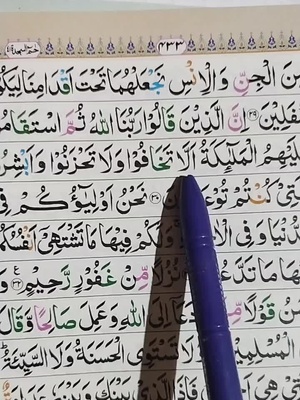 ٤٣٣ حٰمٓ السجدة ٤١
نَ الْجِنِّ وَالْاِنْسِ نَجْعَلْهُمَا تَحْتَ اَقْدَامِنَا لِيَكُوْ
فَلِيْنَ ٢٩ اِنَّ الَّذِيْنَ قَالُوْا رَبُّنَا اللّٰهُ ثُمَّ اسْتَقَامُ
لَيْهِمُ الْمَلٰٓئِكَةُ اَلَّا تَخَافُوْا وَلَا تَحْزَنُوْا وَاَبْشِرُ
تِيْ كُنْتُمْ تُوْعَدُوْنَ ٣٠ نَحْنُ اَوْلِيٰٓؤُكُمْ فِي
دُّنْيَا وَفِي الْاٰ وَلَكُمْ فِيْهَا مَا تَشْتَهِيْٓ اَنْفُسُكُمْ
هَا مَا تَدَّعُ نُزُلًا مِّنْ غَفُوْرٍ رَّحِيْمٍ ٣٢ وَ
نُ قَوْلًا مِّ دَعَآ اِلَى اللّٰهِ وَعَمِلَ صَالِحًا وَّقَالَ
الْمُسْلِمِيْ تَسْتَوِي الْحَسَنَةُ وَلَا السَّيِّئَةُ
تِيْ هِيَ فَاِذَا الَّذِيْ بَيْنَكَ وَبَيْنَهٗ عَدَاوَةٌ